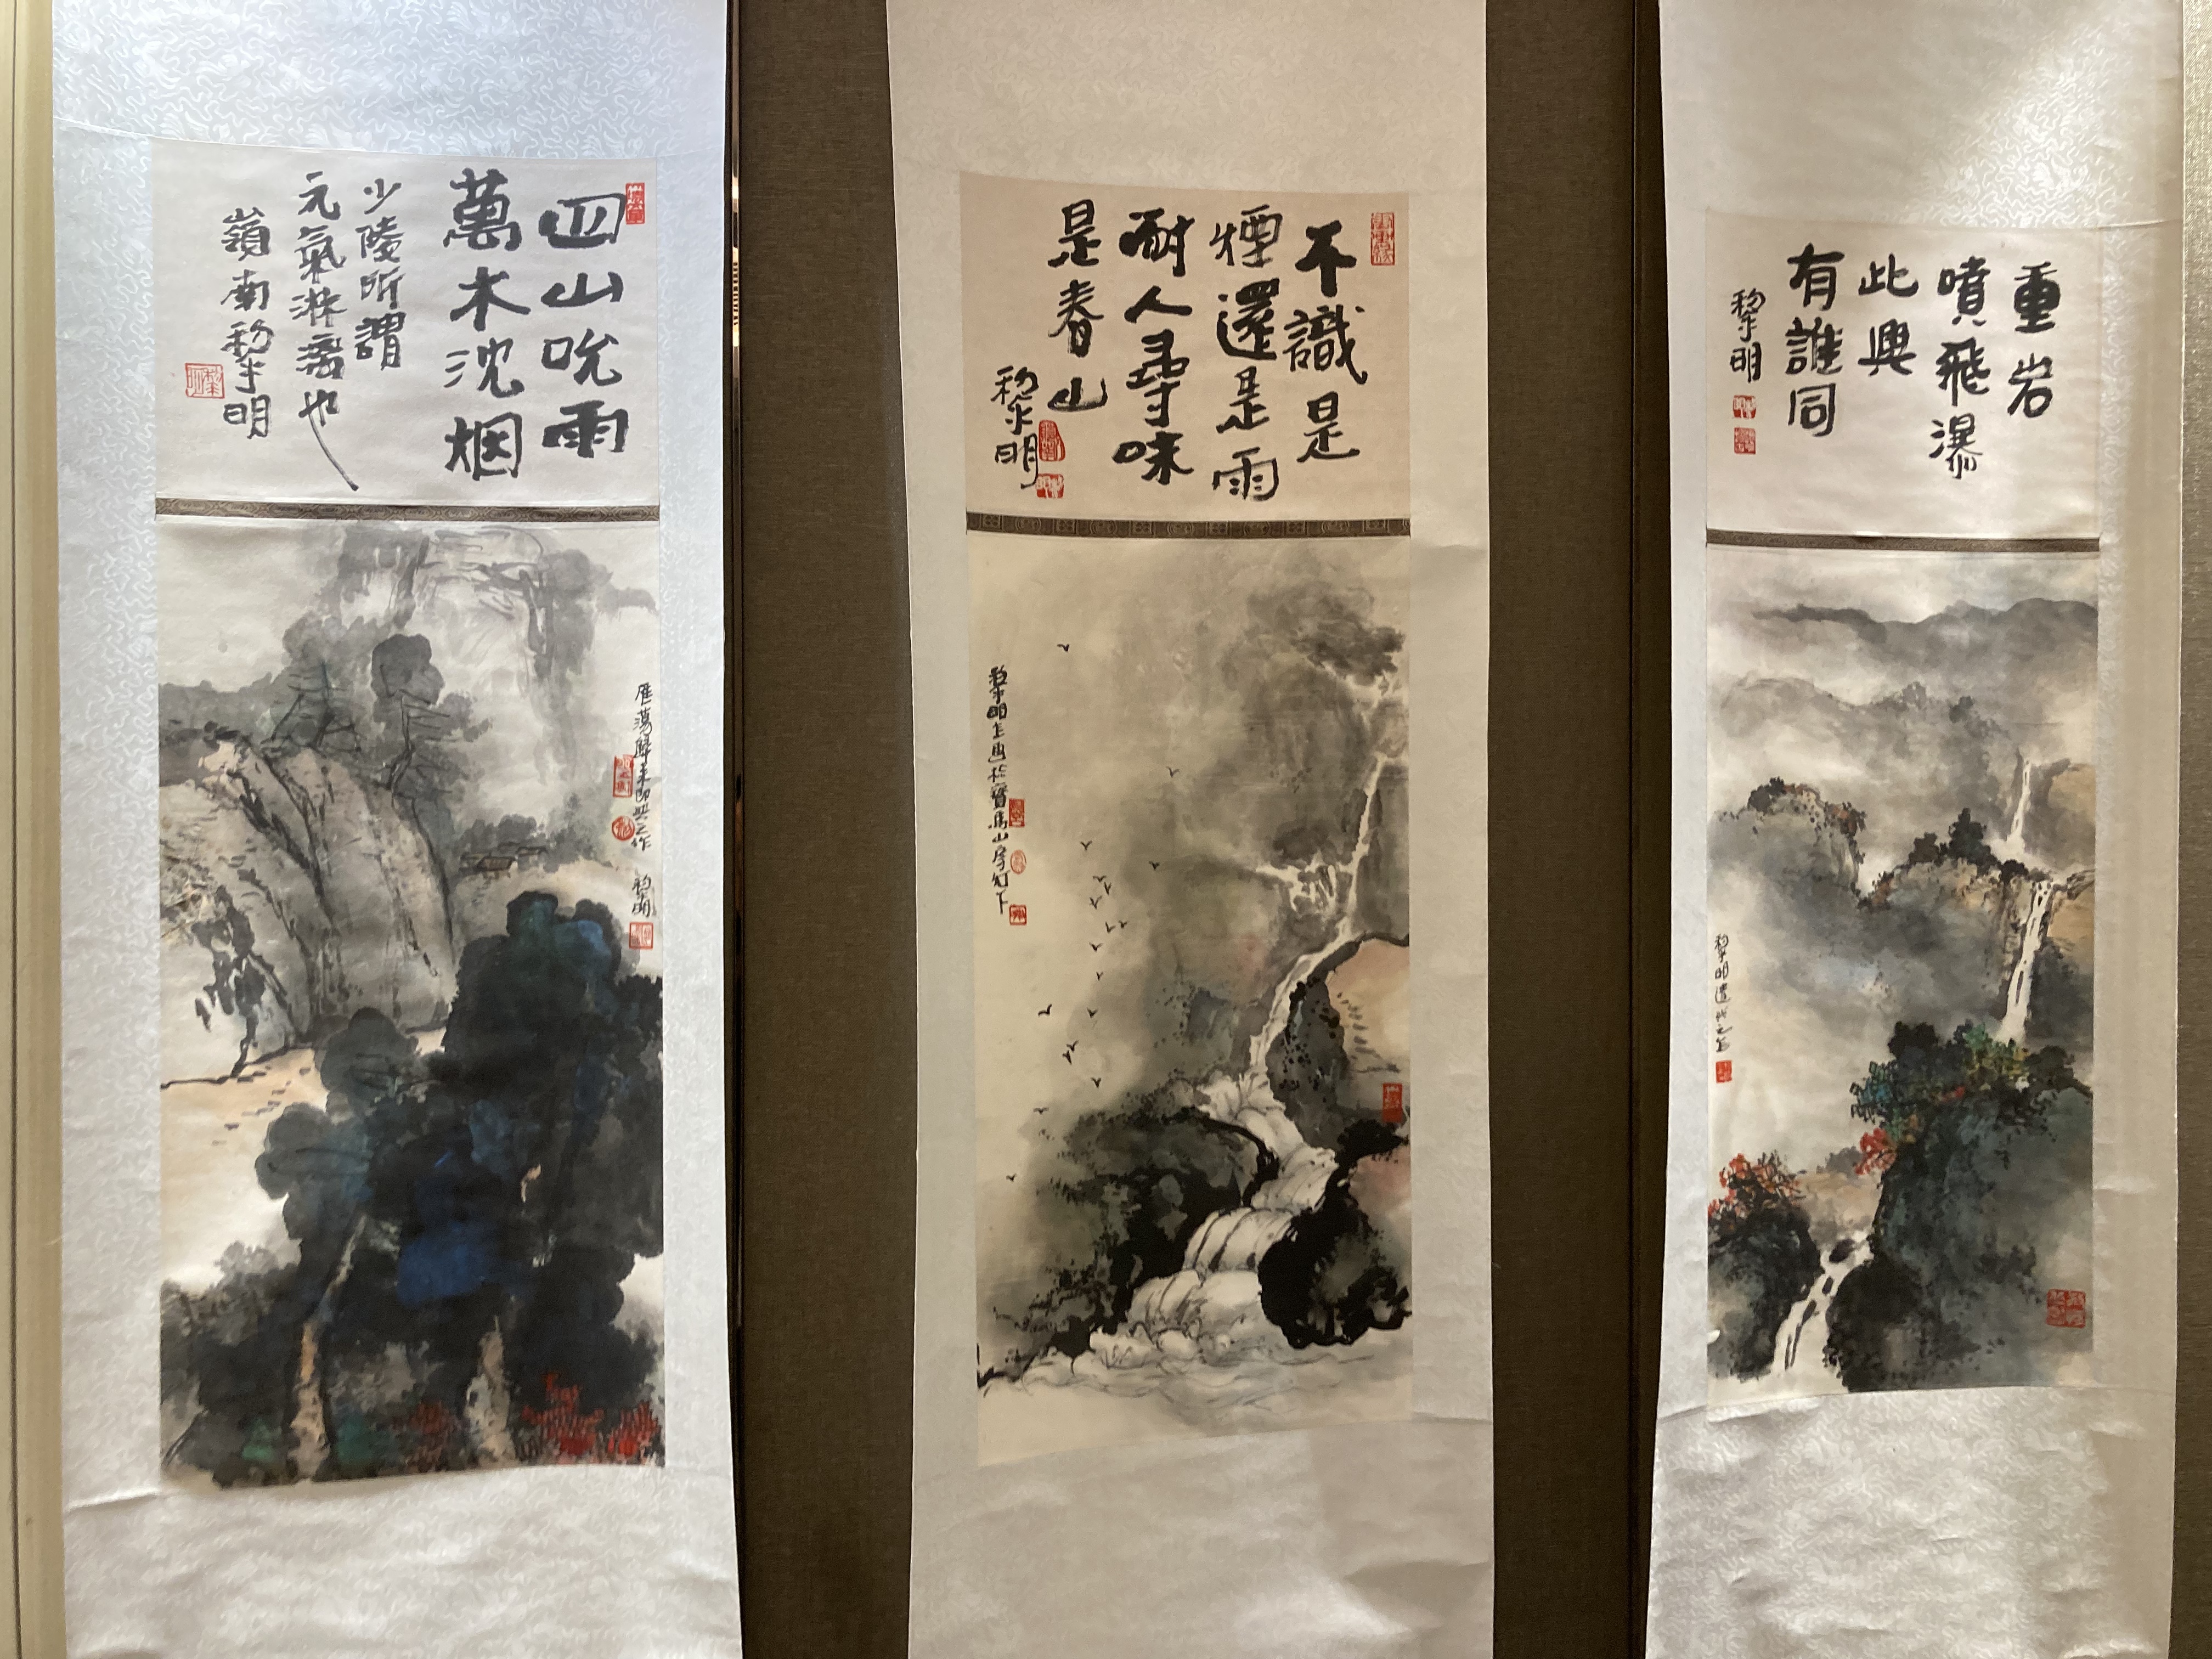 四山吮雨
萬木沈烟
少陵所謂
元氣淋漓也
嶺南黎明
雁蕩歸來即興之作
黎明
不識是
煙還是雨
耐人尋味
是春山
黎明
重岩
噴飛瀑
此興
有誰同
黎明